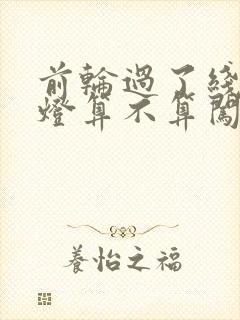 前輪過了綫
燈算不算闖
養怡之福